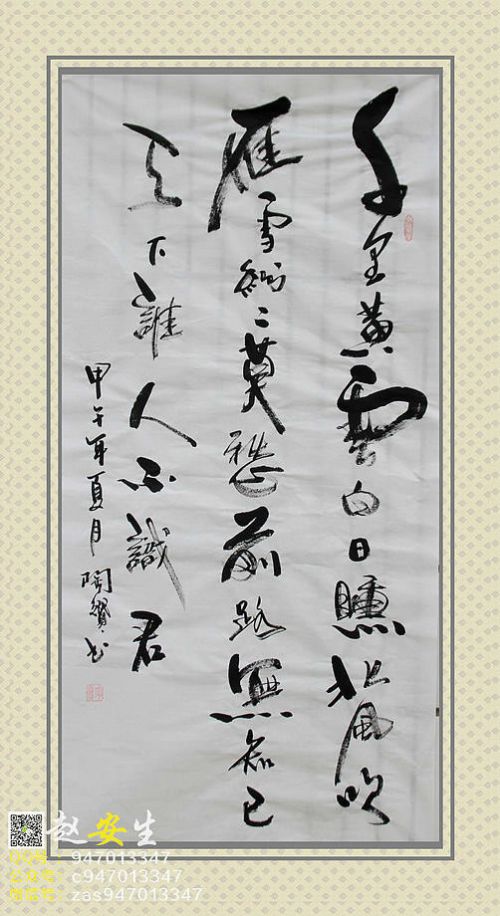 千里黄雲白日曛北風吹
雁雪紛〻莫愁前路無知己
天下誰人不識君
甲午年夏月陶书
赵安生
QQ号：947013347
公众号：c947013347
微信号：zas947013347